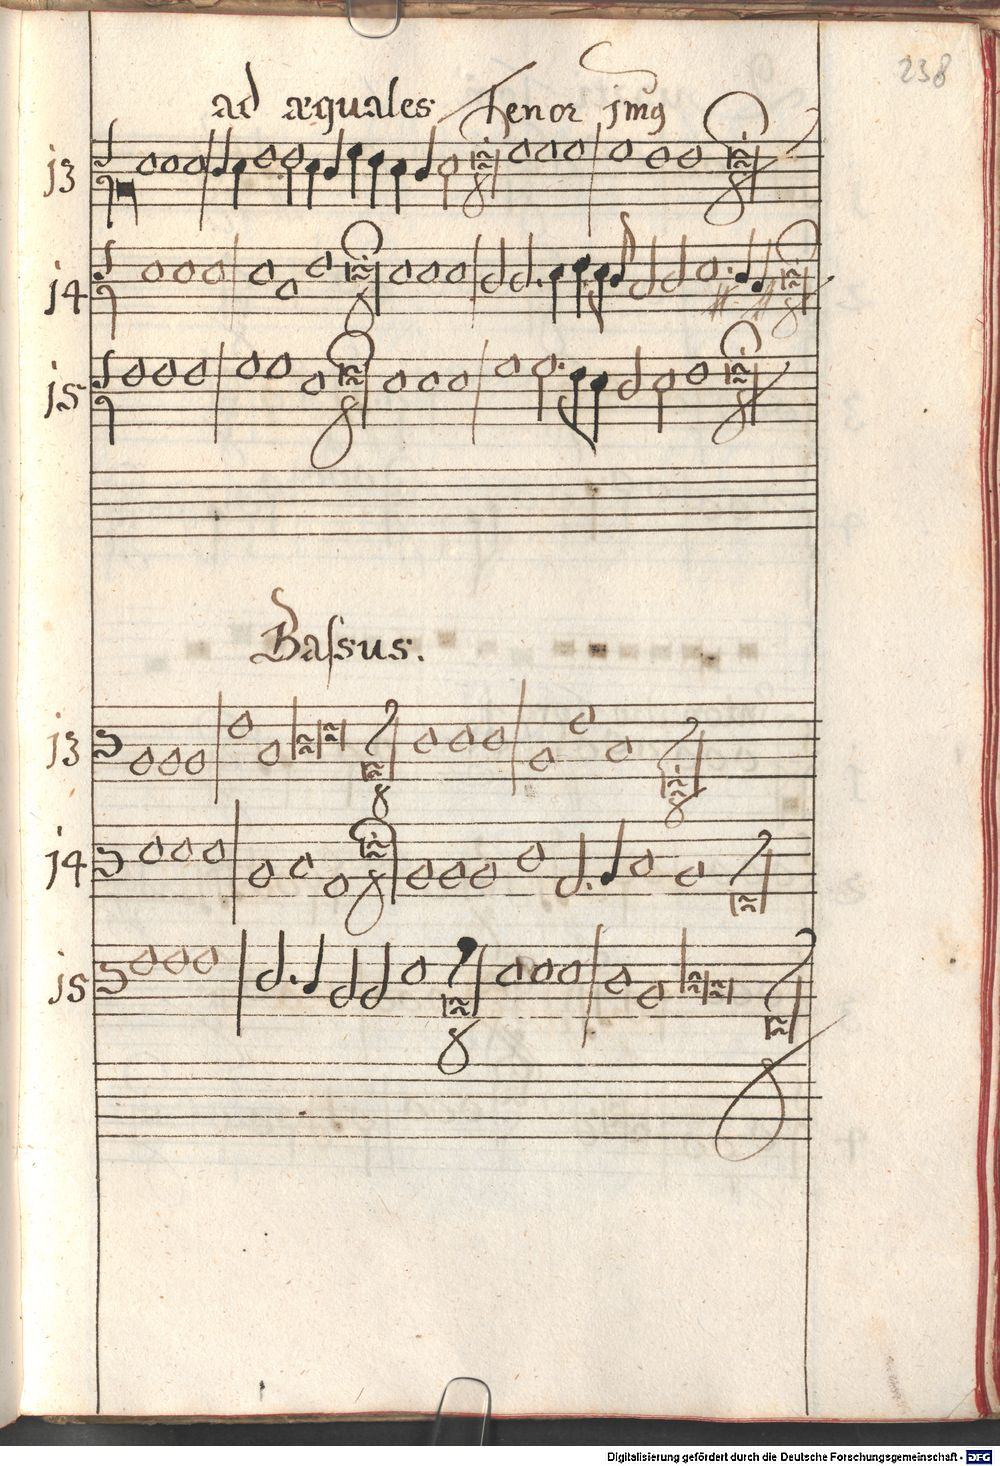 238
ad æquales Tenor jmꝰ
j3
j4
j5
Baſsus.
j3
j4
j5
Digitalisierung gefördert durch die Deutsche Forschungsgemeinschaft - DFG